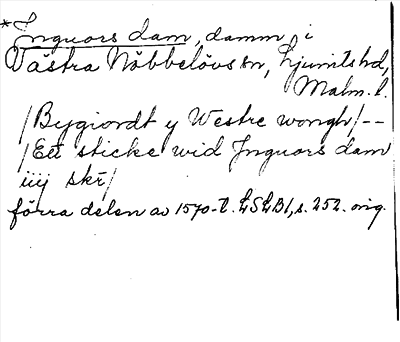 *Ingvors dam, damm, i
Västra Nöbbelövs sn, Ljunits hd,
Malm. l.
/Bygiordt y Westre wongh/--
/Ett sticke wid Jnguors dam
iiij skr/
förra delen av 1570-t. LSLB1, s. 252. orig.